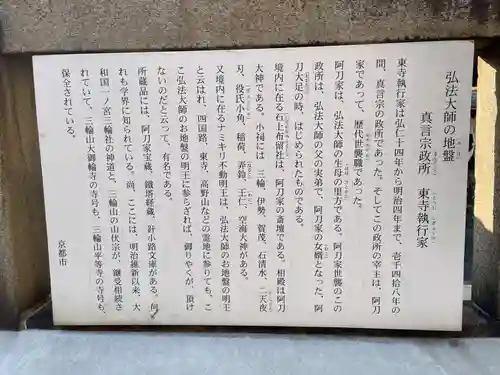 弘法大師の地盤
真言宗政所　東寺執行家
東寺執行家は弘仁十四年から明治四年まで、壱千四拾八年の
間、真言宗の政所であった。そしてこの政所の宰主は、阿刀
家であって、歴代世襲職であった。
阿刀家は、弘法大師の生母の里方である。阿刀家世襲のこの
政所は、弘法大師の父の実弟で、阿刀家の女婿となった、阿
刀大足の時、はじめられたものである。
境内に在る石上布留社は、阿刀家の斎壇である。相殿は阿刀
大神である。小祠には　三輪、伊勢、賀茂、石清水、二天夜
刄、役氏小角、稲荷、弄鈴、王仁、空海大神がある。
又境内に在るナミキリ不動明王は、弘法大師のお地盤の明王
と云はれ、四国路、東寺、高野山などの霊地に参りても、こ
こ弘法大師のお地盤の明王に参らざれば、御りやくが、頂け
ないのだと云って、有名である。
所蔵品には、阿刀家宝蔵、鐵塔経蔵、計小路文庫がある。何
れも学界に知られている。尚、ここには、明治維新以来、大
和国一ノ宮三輪社の神道と、三輪山の山伏宗が、継受相続さ
れていて、三輪山大御輪寺の寺号も、三輪山平等寺の寺号も、
保全されている。
京都市